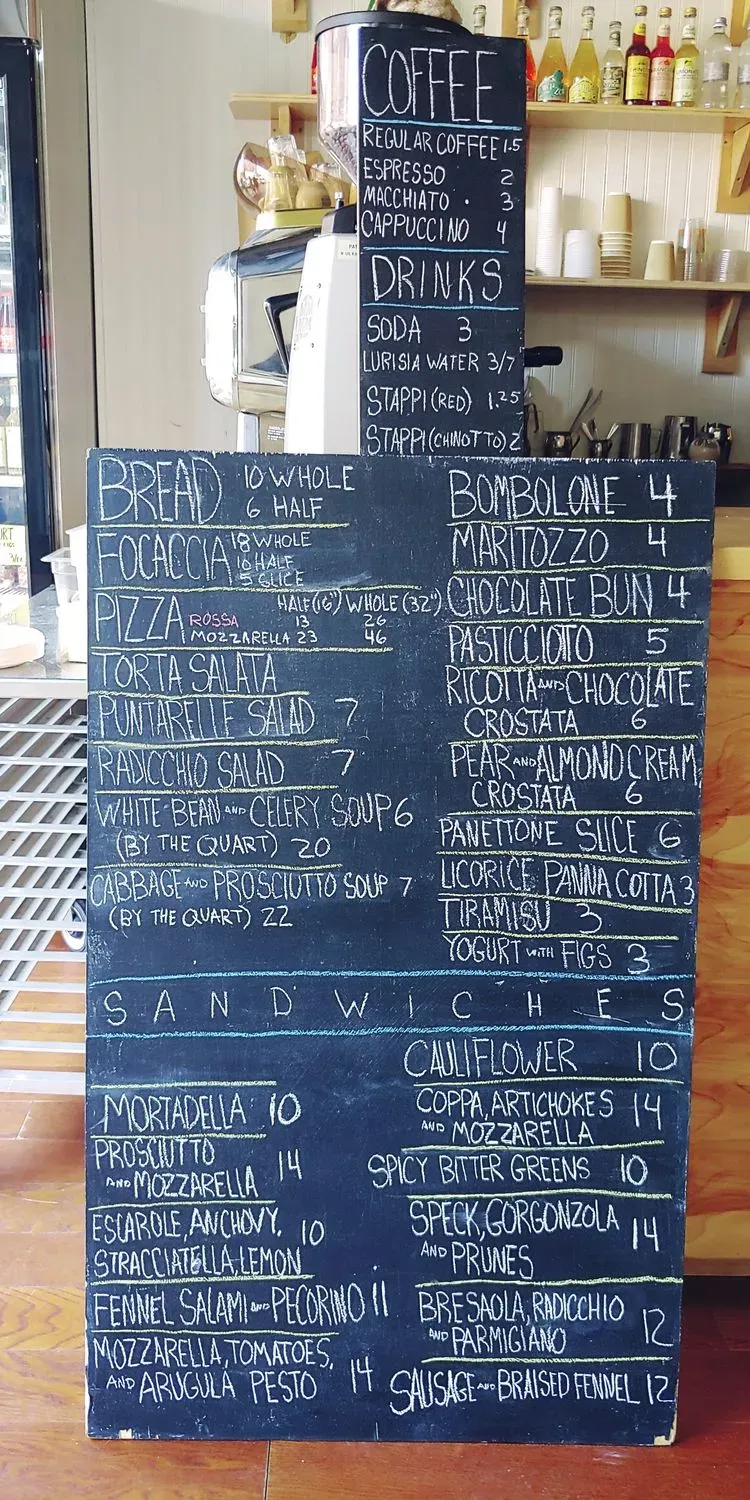 COFFEE
REGULAR COFFEE 1.5
ESPRESSO 2
MACCHIATO 3
CAPPUCCINO 4
DRINKS
SODA 3
LURISIA WATER 3/7
STAPPI (RED) 1.25
STAPPI (CHINOTTO) 2
BREAD 10 WHOLE
6 HALF
FOCACCIA 18 WHOLE
10 HALF
5 SLICE
PIZZA HALF (16") WHOLE (32")
ROSSA 13 26
MOZZARELLA 23 46
TORTA SALATA
PUNTARELLE SALAD 7
RADICCHIO SALAD 7
WHITE BEAN AND CELERY SOUP 6
(BY THE QUART) 20
CABBAGE AND PROSCIUTTO SOUP 7
(BY THE QUART) 22
BOMBOLONE 4
MARITOZZO 4
CHOCOLATE BUN 4
PASTICCIOTTO 5
RICOTTA AND CHOCOLATE
CROSTATA 6
PEAR AND ALMOND CREAM
CROSTATA 6
PANETTONE SLICE 6
LICORICE PANNA COTTA 3
TIRAMISU 3
YOGURT WITH FIGS 3
SANDWICHES
MORTADELLA 10
PROSCIUTTO
AND MOZZARELLA 14
ESCAROLE, ANCHOVY, 10
STRACCIATELLA, LEMON
FENNEL SALAMI AND PECORINO 11
MOZZARELLA, TOMATOES,
AND ARUGULA PESTO 14
CAULIFLOWER 10
COPPA, ARTICHOKES 14
AND MOZZARELLA
SPICY BITTER GREENS 10
SPECK, GORGONZOLA 14
AND PRUNES
BRESAOLA, RADICCHIO
AND PARMIGIANO 12
SAUSAGE AND BRAISED FENNEL 12